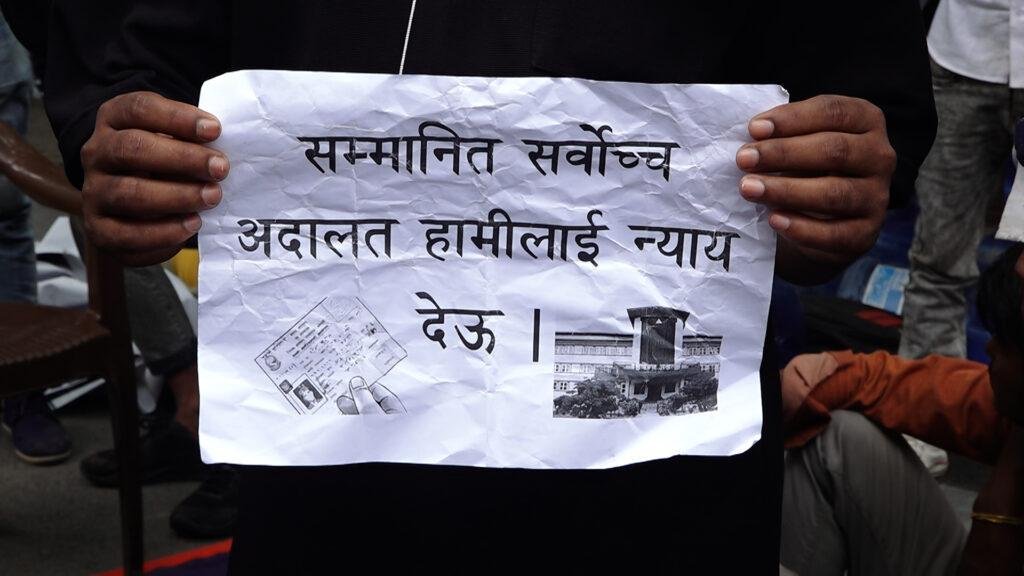 सम्मानित सर्वोच्च
अदालत हामीलाई न्याय
देऊ ।